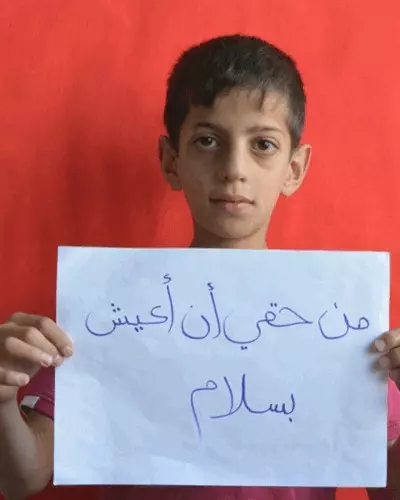 من حقي أن أعيش
بسلام